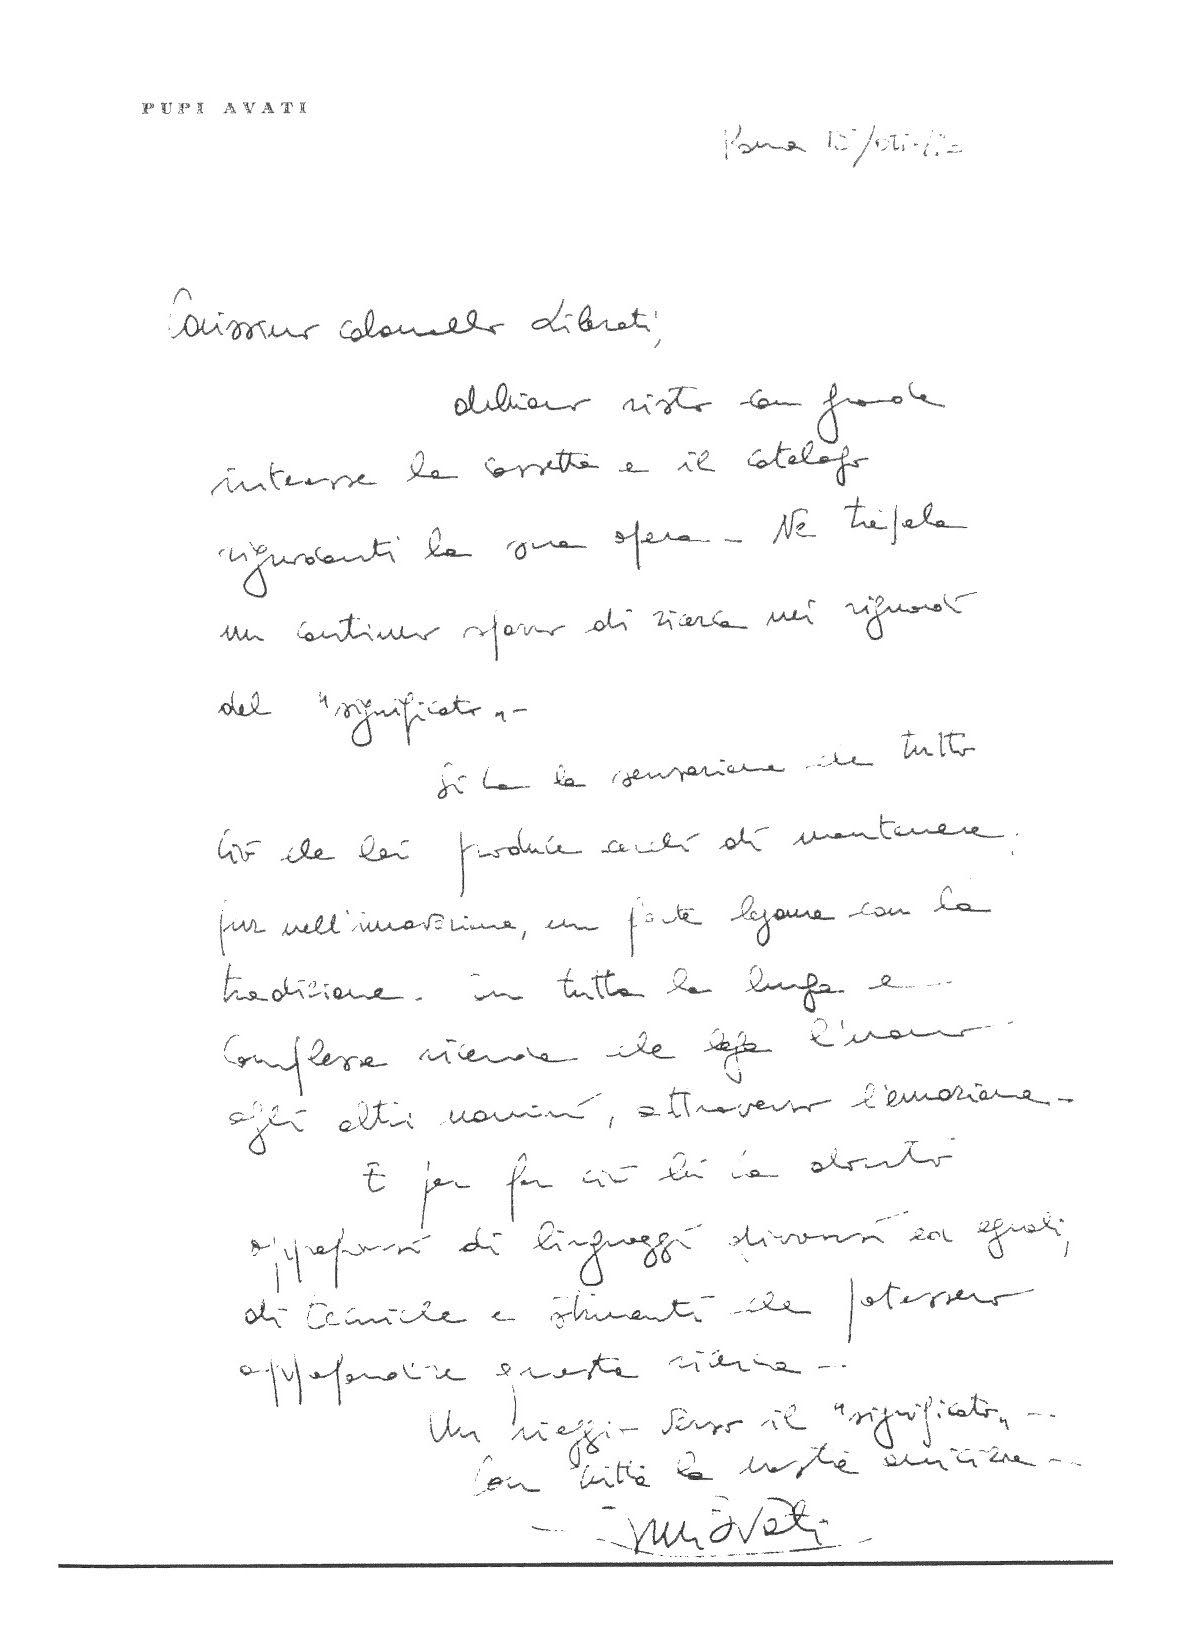 PUPI AVATI
Roma 15/
Carissimo colonnello Liberati,
abbiamo visto con grande
interesse la cassetta e il catalogo
riguardanti la sua opera - Ne trapela
un continuo sforzo di ricerca nei riguardi
del "significato" -
Si ha la sensazione che tutto
ciò che lei produce cerchi di mantenere,
pur nell'innovazione, un forte legame con la
tradizione. in tutta la lunga e
complessa vicenda che lega l'uomo
agli altri uomini, attraverso l'emozione -
E per far ciò lei ha dovuto
appropriarsi di linguaggi diversi ed eguali,
di tecniche e strumenti che potessero
approfondire questa ricerca -
Un viaggio verso il "significato" -
Con tutta la nostra amicizia -
Pupi Avati